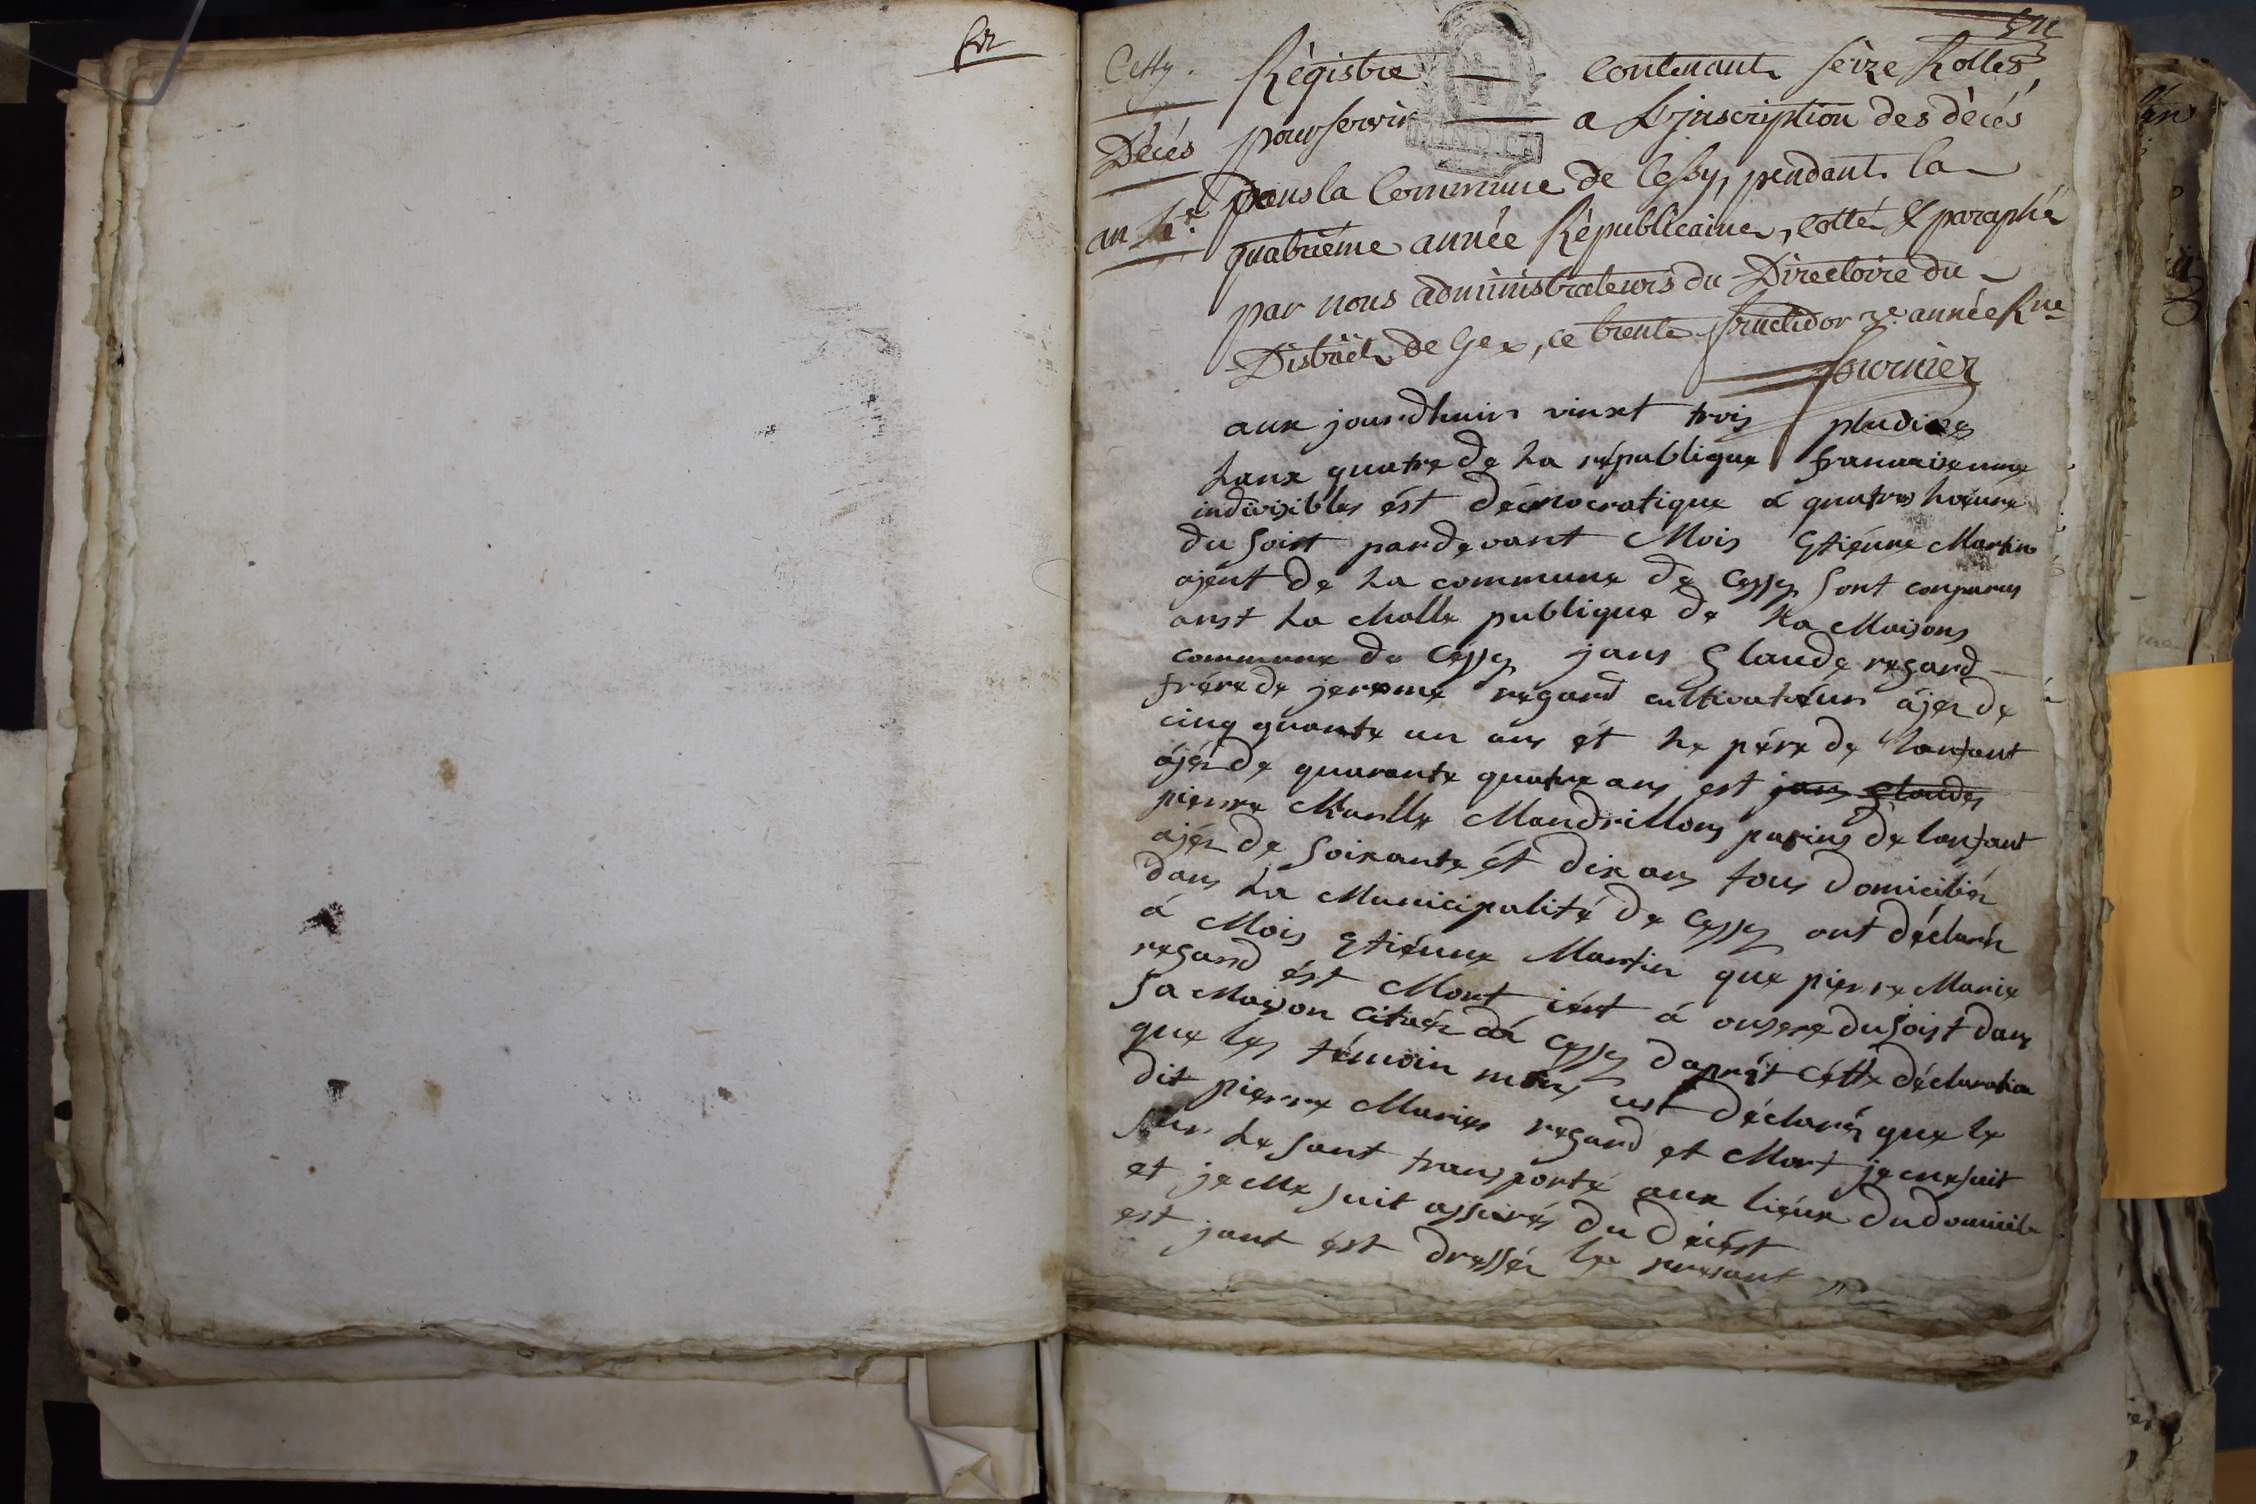 Cessy.
Décés
an 4e.
Régistre contenant seize Rolles,
pour servir a L'jnscription des décés
dans la Commune de Cessy, pendant la
quatrième année Républicaine, cotté & paraphé
par nous administrateurs du Directoire du
District de Gex, ce trente fructidor 3e. année Rne
fournier
aux jourdhuis vinxt trois pludiose
lanx quatre de La république
indivisibles ést démocratique a quatres
du soirt pardevant Mois Etiénne Martin
ajent de La commune de Cessy sont conparus
anst La challe publique de La Maisons
commune de Céssy jans Glaude regard
frére de jerome regard cultivatéur âjéz de
cinq quante un ans ét Le pére de Lanfant
âjéz de quarante quatre ans est jans Glaudes
pierre Mandrillons parins de lanfant
ajéz de soixante ét dix ans tous domiciliéz
dans La Municipalité de Cessy ont déclaréz
á Mois Etiénne Martin que pierre Marie
regard ést Mort iért á onsere du soirt dans
sa Maison citoéz dá Cessy daprést cétte déclaration
que les témoin mons ust déclaréz que le
dit pierre Maries regard et Mort je me suit
sur Le sant transporté aux liéux du domicile
et je Me suit assuréz du décést
est jant ést dresséz le present